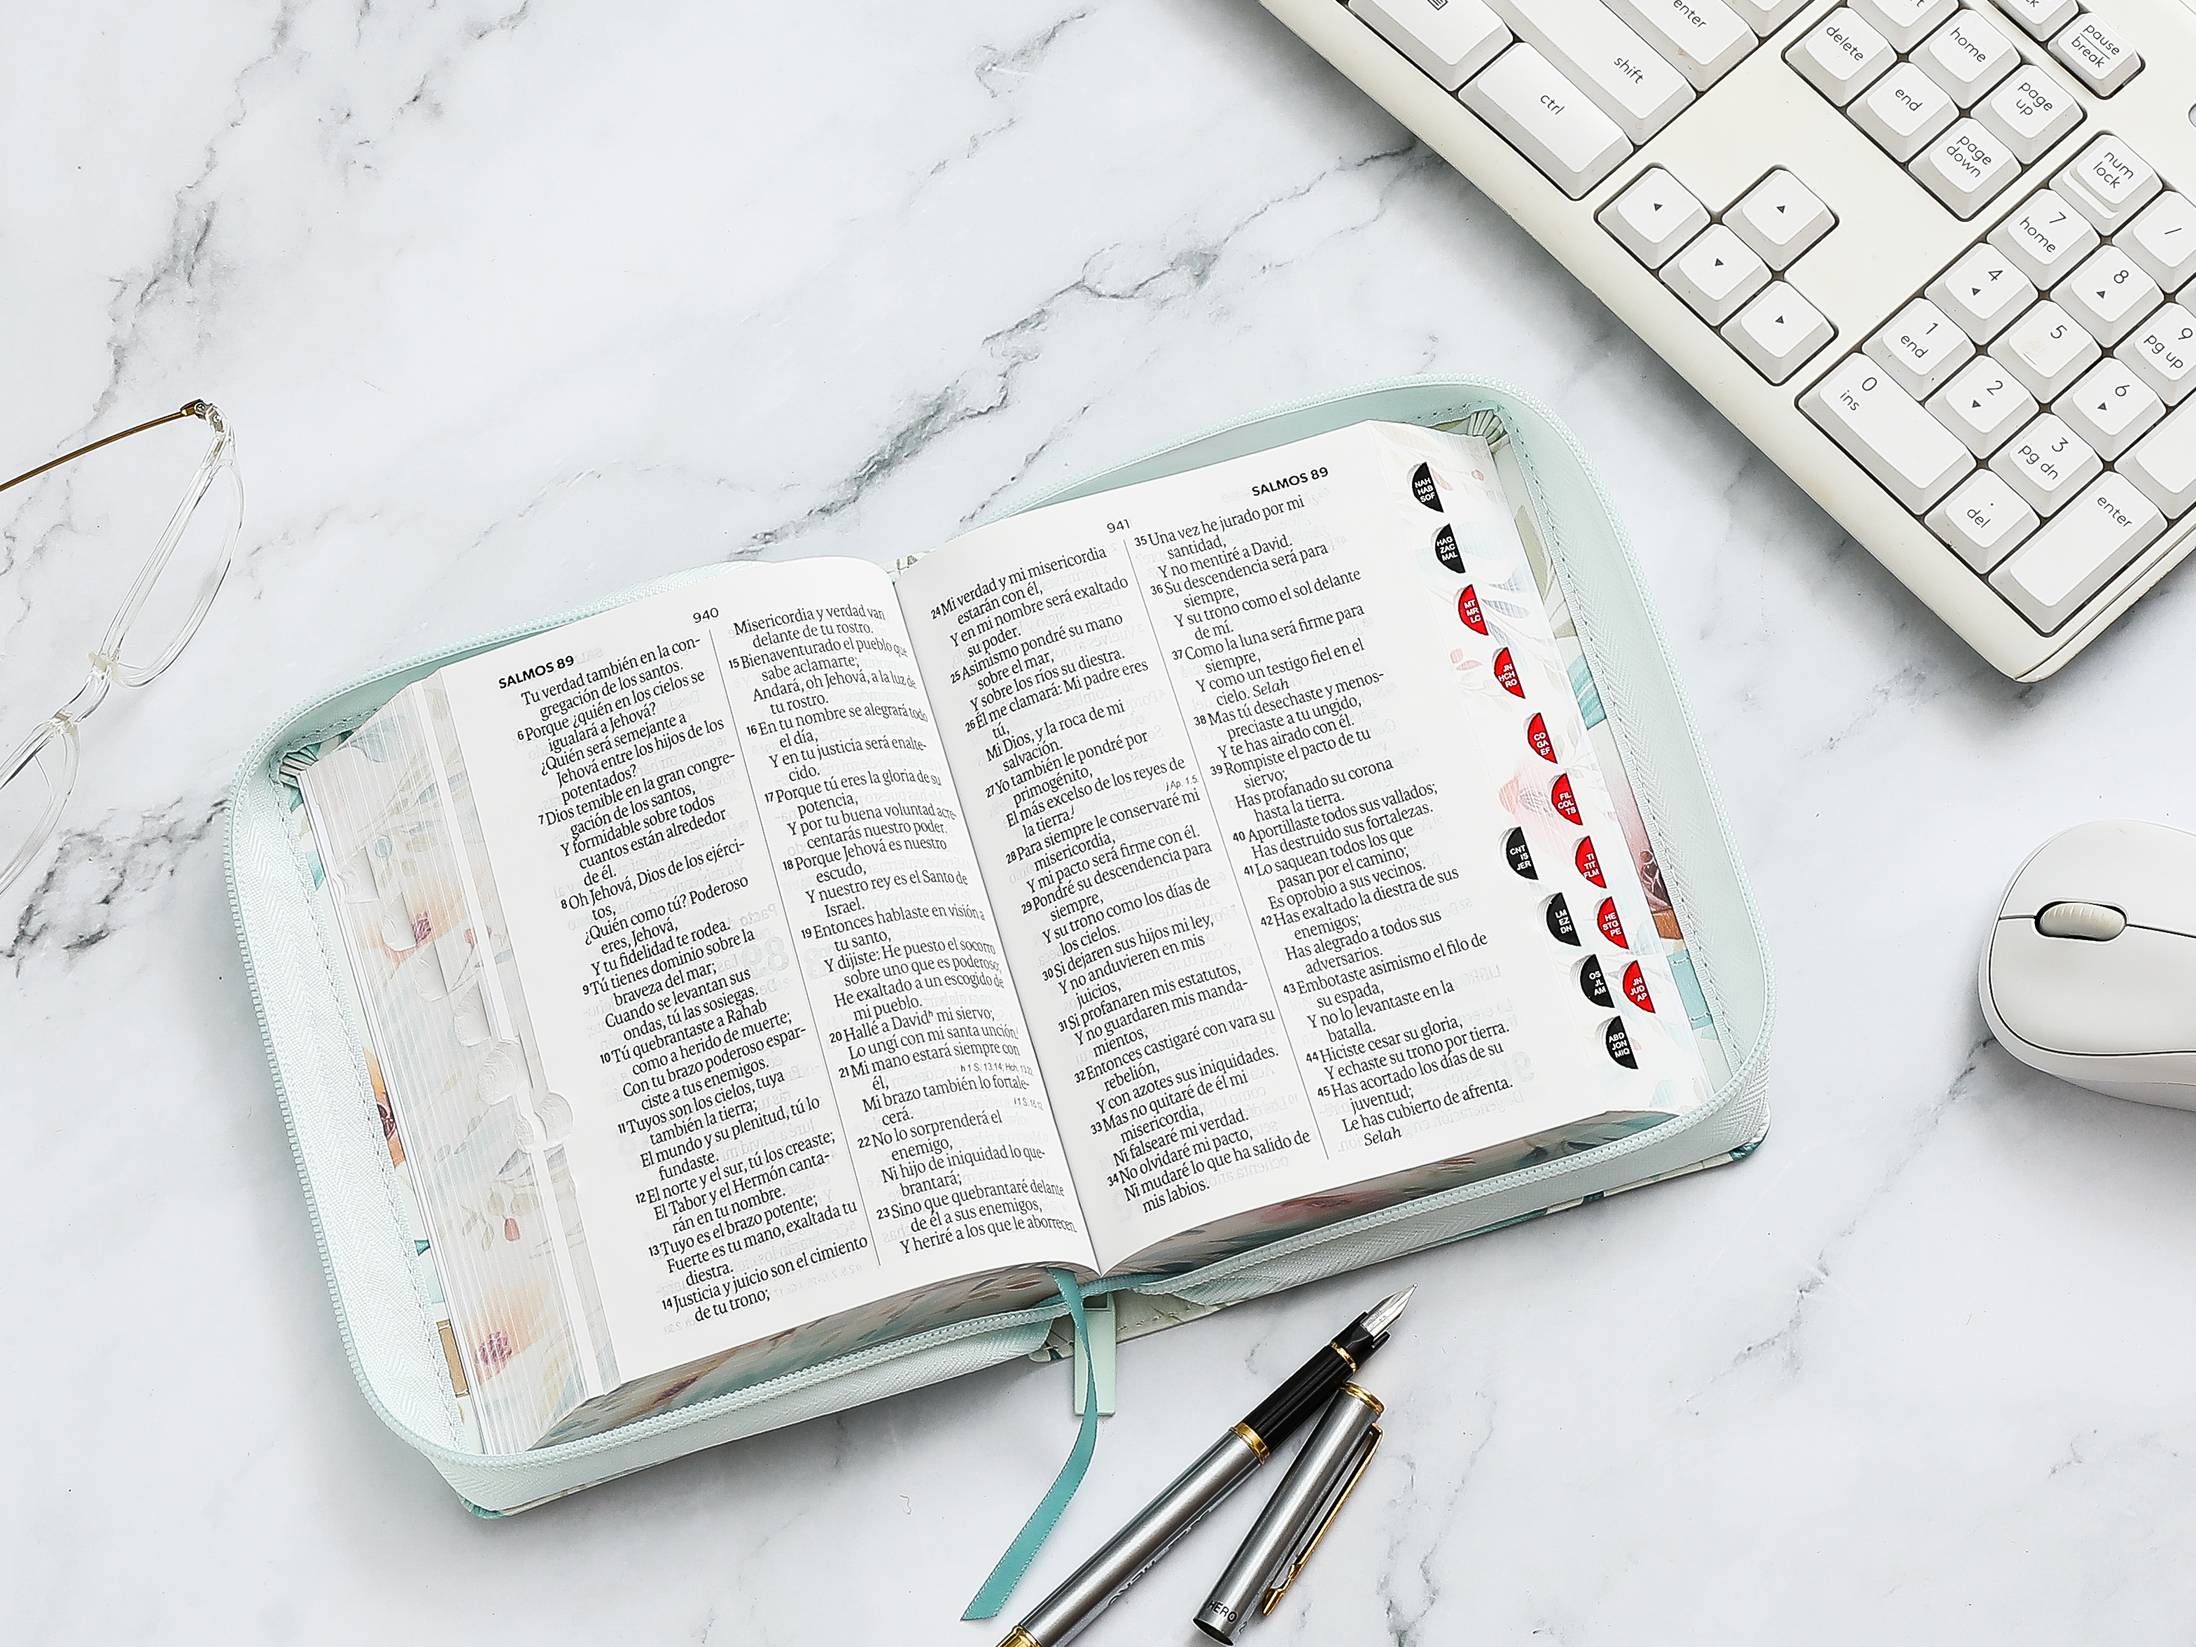 940
SALMOS 89
Tu verdad también en la con-
gregación de los santos.
6 Porque ¿quién en los cielos se
igualará a Jehová?
¿Quién será semejante a
Jehová entre los hijos de los
potentados?
7 Dios temible en la gran congre-
gación de los santos,
Y formidable sobre todos
cuantos están alrededor
de él.
8 Oh Jehová, Dios de los ejérci-
tos,
¿Quién como tú? Poderoso
eres, Jehová,
Y tu fidelidad te rodea.
9 Tú tienes dominio sobre la
braveza del mar;
Cuando se levantan sus
ondas, tú las sosiegas.
10 Tú quebrantaste a Rahab
como a herido de muerte;
Con tu brazo poderoso espar-
ciste a tus enemigos.
11 Tuyos son los cielos, tuya
también la tierra;
El mundo y su plenitud, tú lo
fundaste.
12 El norte y el sur, tú los creaste;
El Tabor y el Hermón canta-
rán en tu nombre.
13 Tuyo es el brazo potente;
Fuerte es tu mano, exaltada tu
diestra.
14 Justicia y juicio son el cimiento
de tu trono;
Misericordia y verdad van
delante de tu rostro.
15 Bienaventurado el pueblo que
sabe aclamarte;
Andará, oh Jehová, a la luz de
tu rostro.
16 En tu nombre se alegrará todo
el día,
Y en tu justicia será enalte-
cido.
17 Porque tú eres la gloria de su
potencia,
Y por tu buena voluntad acre-
centarás nuestro poder.
18 Porque Jehová es nuestro
escudo,
Y nuestro rey es el Santo de
Israel.
19 Entonces hablaste en visión a
tu santo,
Y dijiste: He puesto el socorro
sobre uno que es poderoso;
He exaltado a un escogido de
mi pueblo.
20 Hallé a Davidʰ mi siervo;
Lo ungí con mi santa unción.
21 Mi mano estará siempre con
él,
h 1 S. 13.14; Hch. 13.22
Mi brazo también lo fortale-
cerá.
i 1 S. 16.12
22 No lo sorprenderá el
enemigo,
Ni hijo de iniquidad lo que-
brantará;
23 Sino que quebrantaré delante
de él a sus enemigos,
Y heriré a los que le aborrecen.
941
SALMOS 89
24 Mi verdad y mi misericordia
estarán con él,
Y en mi nombre será exaltado
su poder.
25 Asimismo pondré su mano
sobre el mar,
Y sobre los ríos su diestra.
26 Él me clamará: Mi padre eres
tú,
Mi Dios, y la roca de mi
salvación.
27 Yo también le pondré por
primogénito,
El más excelso de los reyes de
la tierra.j
j Ap. 1.5.
28 Para siempre le conservaré mi
misericordia,
Y mi pacto será firme con él.
29 Pondré su descendencia para
siempre,
Y su trono como los días de
los cielos.
30 Si dejaren sus hijos mi ley,
Y no anduvieren en mis
juicios,
31 Si profanaren mis estatutos,
Y no guardaren mis manda-
mientos,
32 Entonces castigaré con vara su
rebelión,
Y con azotes sus iniquidades.
33 Mas no quitaré de él mi
misericordia,
Ni falsearé mi verdad.
34 No olvidaré mi pacto,
Ni mudaré lo que ha salido de
mis labios.
35 Una vez he jurado por mi
santidad,
Y no mentiré a David.
36 Su descendencia será para
siempre,
Y su trono como el sol delante
de mí.
37 Como la luna será firme para
siempre,
Y como un testigo fiel en el
cielo. Selah
38 Mas tú desechaste y menos-
preciaste a tu ungido,
Y te has airado con él.
39 Rompiste el pacto de tu
siervo;
Has profanado su corona
hasta la tierra.
40 Aportillaste todos sus vallados;
Has destruido sus fortalezas.
41 Lo saquean todos los que
pasan por el camino;
Es oprobio a sus vecinos.
42 Has exaltado la diestra de sus
enemigos;
Has alegrado a todos sus
adversarios.
43 Embotaste asimismo el filo de
su espada,
Y no lo levantaste en la
batalla.
44 Hiciste cesar su gloria,
Y echaste su trono por tierra.
45 Has acortado los días de su
juventud;
Le has cubierto de afrenta.
Selah
NAH
HAB
SOF
HAG
ZAC
MAL
MT
MR
LC
JN
HCH
RO
CO
GA
EF
FIL
COL
TS
CNT
IS
JER
TI
TIT
FLM
LM
EZ
DN
HE
STG
PE
OS
JL
AM
JN
JUD
AP
ABD
JON
MIQ
enter
shift
ctrl
delete
home
pause
break
end
page
up
page
down
num
lock
7
home
/
4
8
9
pg up
1
end
5
6
0
ins
2
3
pg dn
del
enter
HERO